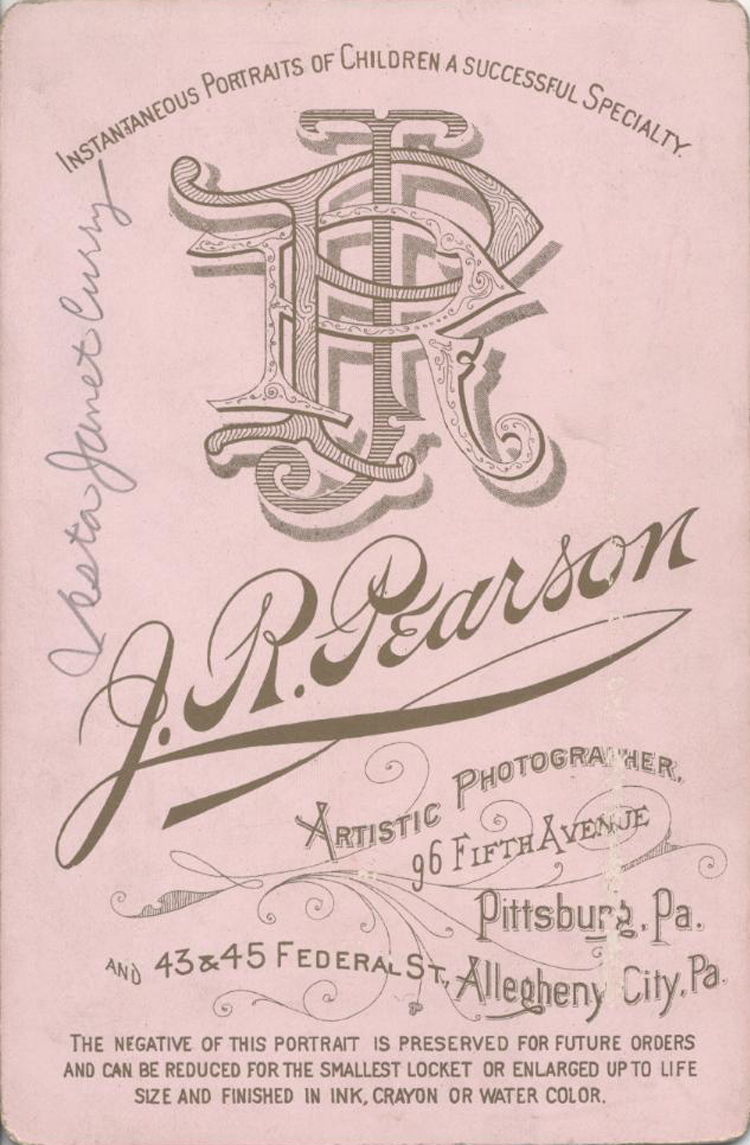 INSTANTANEOUS PORTRAITS OF CHILDREN A SUCCESSFUL SPECIALTY.
JPR
Vesta Janet Curry
J. R. Pearson
ARTISTIC PHOTOGRAPHER,
96 FIFTH AVENUE
Pittsburg, Pa.
AND 43 & 45 FEDERAL ST., Allegheny City, Pa.
THE NEGATIVE OF THIS PORTRAIT IS PRESERVED FOR FUTURE ORDERS
AND CAN BE REDUCED FOR THE SMALLEST LOCKET OR ENLARGED UP TO LIFE
SIZE AND FINISHED IN INK, CRAYON OR WATER COLOR.